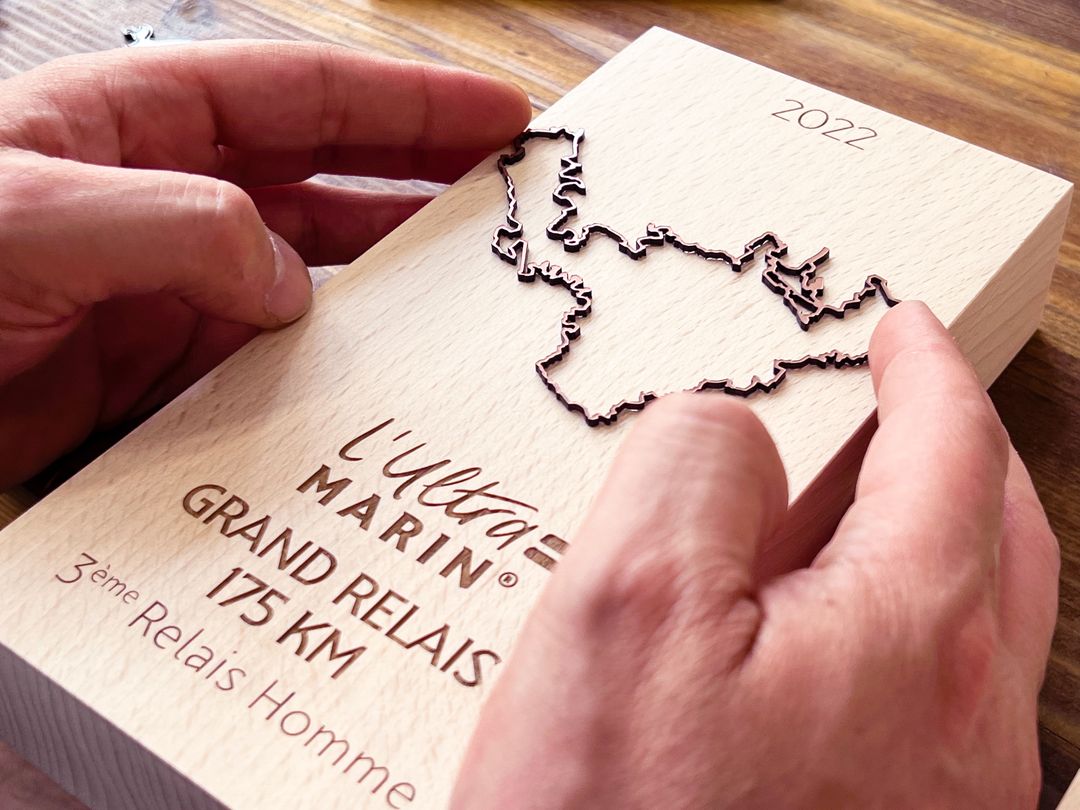 2022
L'Ultra
MARIN®
GRAND RELAIS
175 KM
3ème Relais Homme